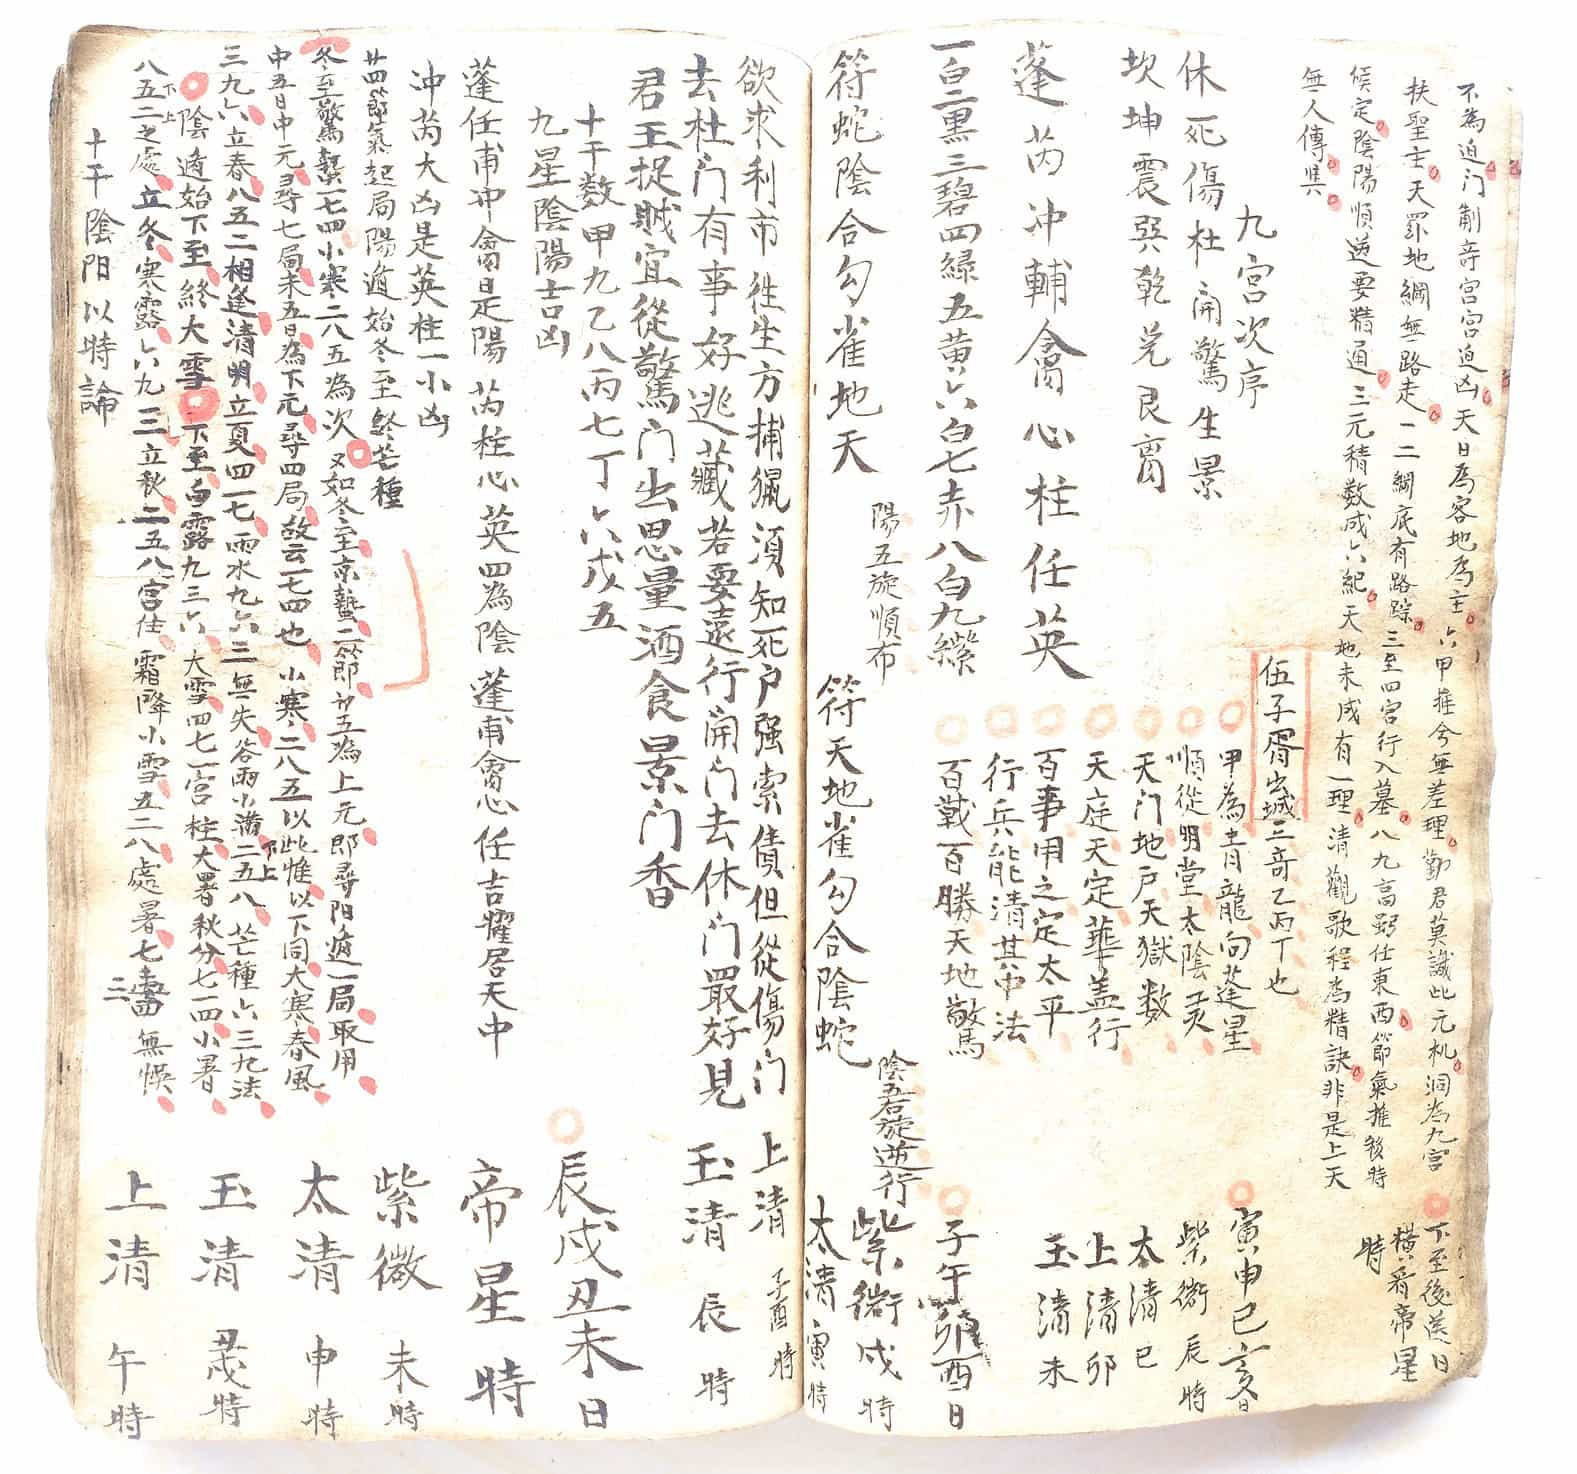 不為迫门制竒宮宮迫凶天日為客地為主六甲推兮無差理勤君莫識此元机洞為九宮
扶聖主天罡地網無路走二二網底有路踪三至四宮行入墓八九高弼任東西節氣推移時
候定陰陽順逆要精通三元積数成六紀天地未成有一理清觀歌程為精訣非是上天
無人傳
下至後逆日
横看帝星
時
九宮次序
休死傷杜開驚生景
坎坤震巽乾兑艮离
蓬芮冲輔禽心柱任英
一白二黒三碧四緑五黄六白七赤八白九紫
符蛇陰合勾雀地天
陽五旋順布
符天地雀勾合陰蛇
陰五后旋逆行
伍子胥出城三竒乙丙丁也
甲為青龍向蓬星
順從明堂太陰亥
天门地户天獄数
天庭天定華盖行
百事用之定太平
行兵能清其中法
百戰百勝天地驚
寅申巳亥日
紫微辰時
太清巳
上清卯
玉清未
子午卯酉日
紫微戌時
太清寅時
欲求利市徃生方捕獵須知死户强索債但從傷门
去杜门有事好逃藏若要遠行開门去休门最好見
君王捉贼宜從驚门出思量酒食景门香
上清子酉時
玉清辰時
十干数甲九乙八丙七丁六戊五
九星陰陽吉凶
蓬任甫冲禽是陽芮柱心英四為陰蓬甫禽心任吉耀居天中
冲芮大凶是英柱一小凶
辰戌丑未日
帝星時
紫微未時
太清申時
玉清丑戌時
上清午時
廿四節氣起局陽遁始冬至終芒種
冬至驚蟄一七四小寒二八五為次又如冬至京蟄二節廿五為上元即尋阳遁一局取用
中五日中元尋七局未五日為下元尋四局故云一七四也小寒二八五以此惟以下同大寒春風
三九六立春八五二相逢清明立夏四一七雨水九六三無失谷雨小满二五八芒種六三九法
陰遁始下至終大雪下至白露九三六大雪四七一宮柱大暑秋分七一四小暑
八五二之處立冬寒露六九三立秋二五八宮住霜降小雪五二八處暑七壹四無悮
十干陰阳以時論